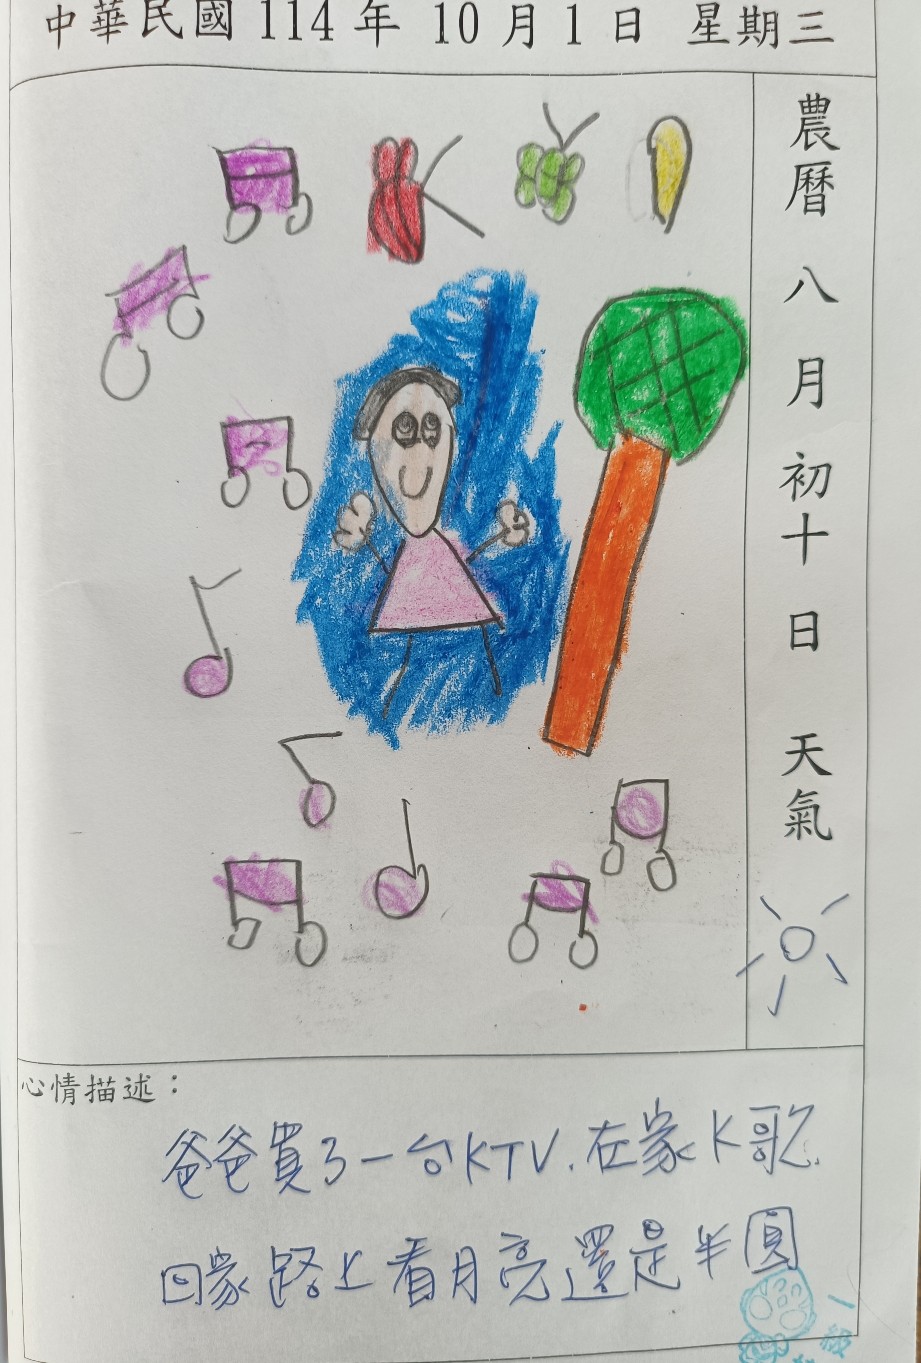 中華民國 114 年 10 月 1 日 星期三
農曆 八月初十日 天氣
心情描述：
爸爸買了一台KTV.在家K歌.
回家路上看月亮還是半圓
一級